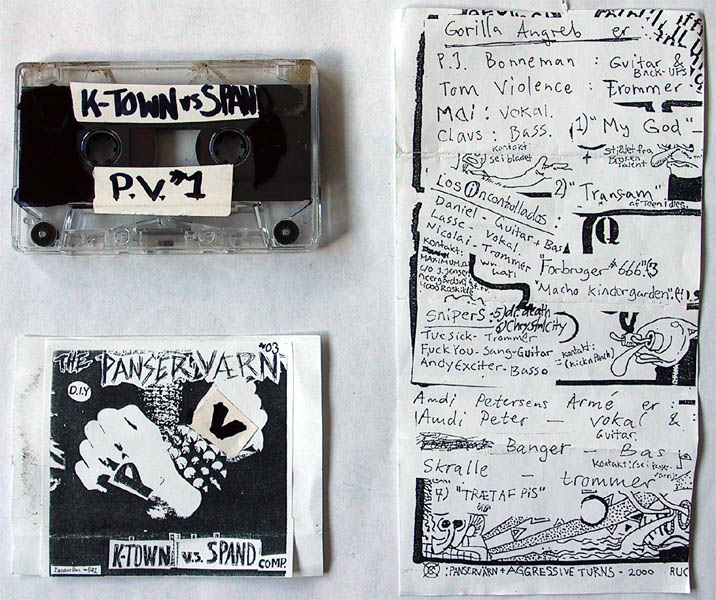 K-TOWN vs SPAND
P.V. #1
#03
THE PANSERVÆRN
D.I.Y
V
K-TOWN v.s. SPAND
COMP.
Gorilla Angreb er:
P.J. Bonneman : Guitar &
BACK-UPS
Tom Violence : Trommer
MAi : Vokal.
Claus : Bass.
1) "My God"
kontakt:
se i bladet
Los incontrollados
2) "Transam"
af Teenidles.
Daniel - Guitar + Bas
Lasse - Vokal
Nicolai - Trommer
kontakt:
MAXIMUM
c/o J. Jensen
4000 Roskilde
"Forbruger #666" (3
"Macho kindergarden" (4
Snipers : 5) dr. death
6) Chrystal City
TueSick - Trommer
Fuck You - Sang - Guitar
Andy Exciter - Basso
kontakt:
(kick n Punch)
Amdi Petersens Armé er :
Amdi Peter — vokal &
Guitar.
Banger — Bas
Skralle — trommer
7) "TRÆT AF PIS"
: PANSERVÆRN + AGGRESSIVE TURNS - 2000 RUC